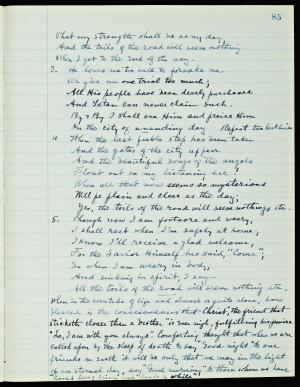 85
That my strength shall be as my day,
And the toils of the road will seem nothing
When I get to the end of the way.
3. He loves me too well to forsake me
Or give me one trial too much;
All His people have been dearly purchased
And Satan can never claim such.
By & By I shall see Him and praise Him
In the city of unending day Refrain
4. When the last feeble step has been taken
And the gates of the city appear
And the beautiful songs of the angels
Float out on my listening ear
When all that now seems so mysterious
Will be plain and clear as the day;
Yes, the toils of the road will seem nothing etc.
5. Though now I am footsore and weary,
I shall rest when I'm safely at home;
I know I'll receive a glad welcome,
For the Savior Himself has said, "Come";
So when I am weary in body,
And sinking in spirit, I say
All the toils of the road will seem nothing etc.
When in the eventide of life and almost or quite alone, how
blessed is the consciousness that Christ, the friend that
sticketh closer than a brother is ever nigh, fulfilling his promise
"Lo, I am with you always." Comforting thought that when we are
called upon by the sleep of death to say "Good night" to our
friends on earth it will be only that we may in the light
of an eternal day, say "Good morning" to those whom we have
loved long since and lost a while".